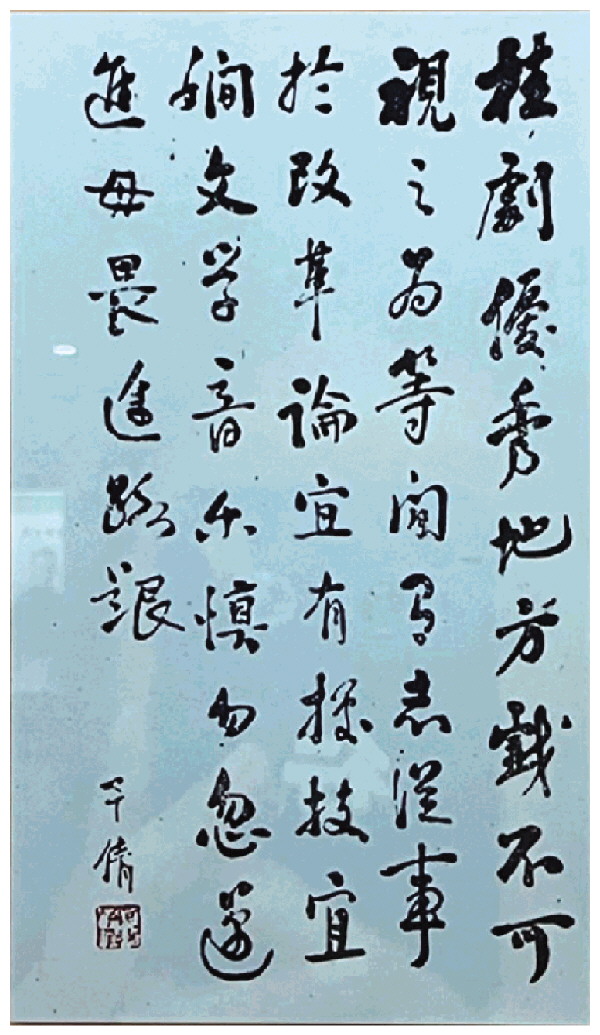 桂劇優秀地方戲不可
視之為等閒有志從事
於改革論宜有據技宜
嫻文學音樂慎勿忽邁
進毋畏途路艱
予倩